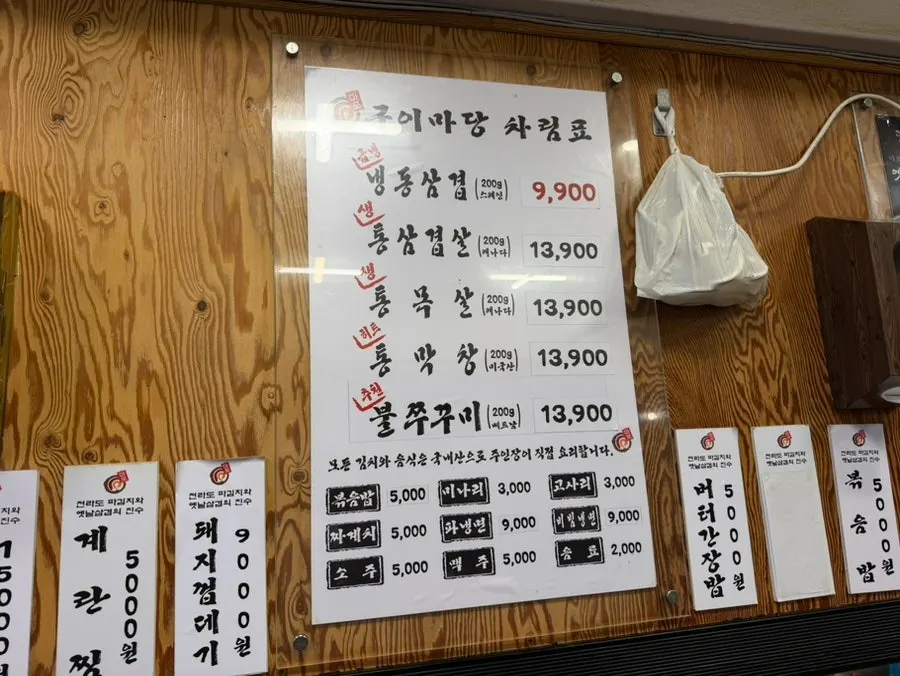 구이마당 차림표
급냉
냉동삼겹 (200g 스페인) 9,900
생
통삼겹살 (200g 캐나다) 13,900
생
통목살 (200g 캐나다) 13,900
히트
통막창 (200g 미국산) 13,900
추천
불쭈꾸미 (200g 베트남) 13,900
모든 김치와 음식은 국내산으로 주인장이 직접 요리합니다.
볶음밥 5,000 미나리 3,000 고사리 3,000
5,000 파냉면 9,000 비빔냉면 9,000
소주 5,000 맥주 5,000 음료 2,000
전라도 파김치와
옛날삼겹의 진수
계란찜 5000원
전라도 파김치와
옛날삼겹의 진수
돼지껍데기 9000원
전라도 파김치와
옛날삼겹의 진수
버터간장밥 5000원
전라도 파김치와
옛날삼겹의 진수
전라도 파김치와
옛날삼겹의 진수
볶음밥 500원